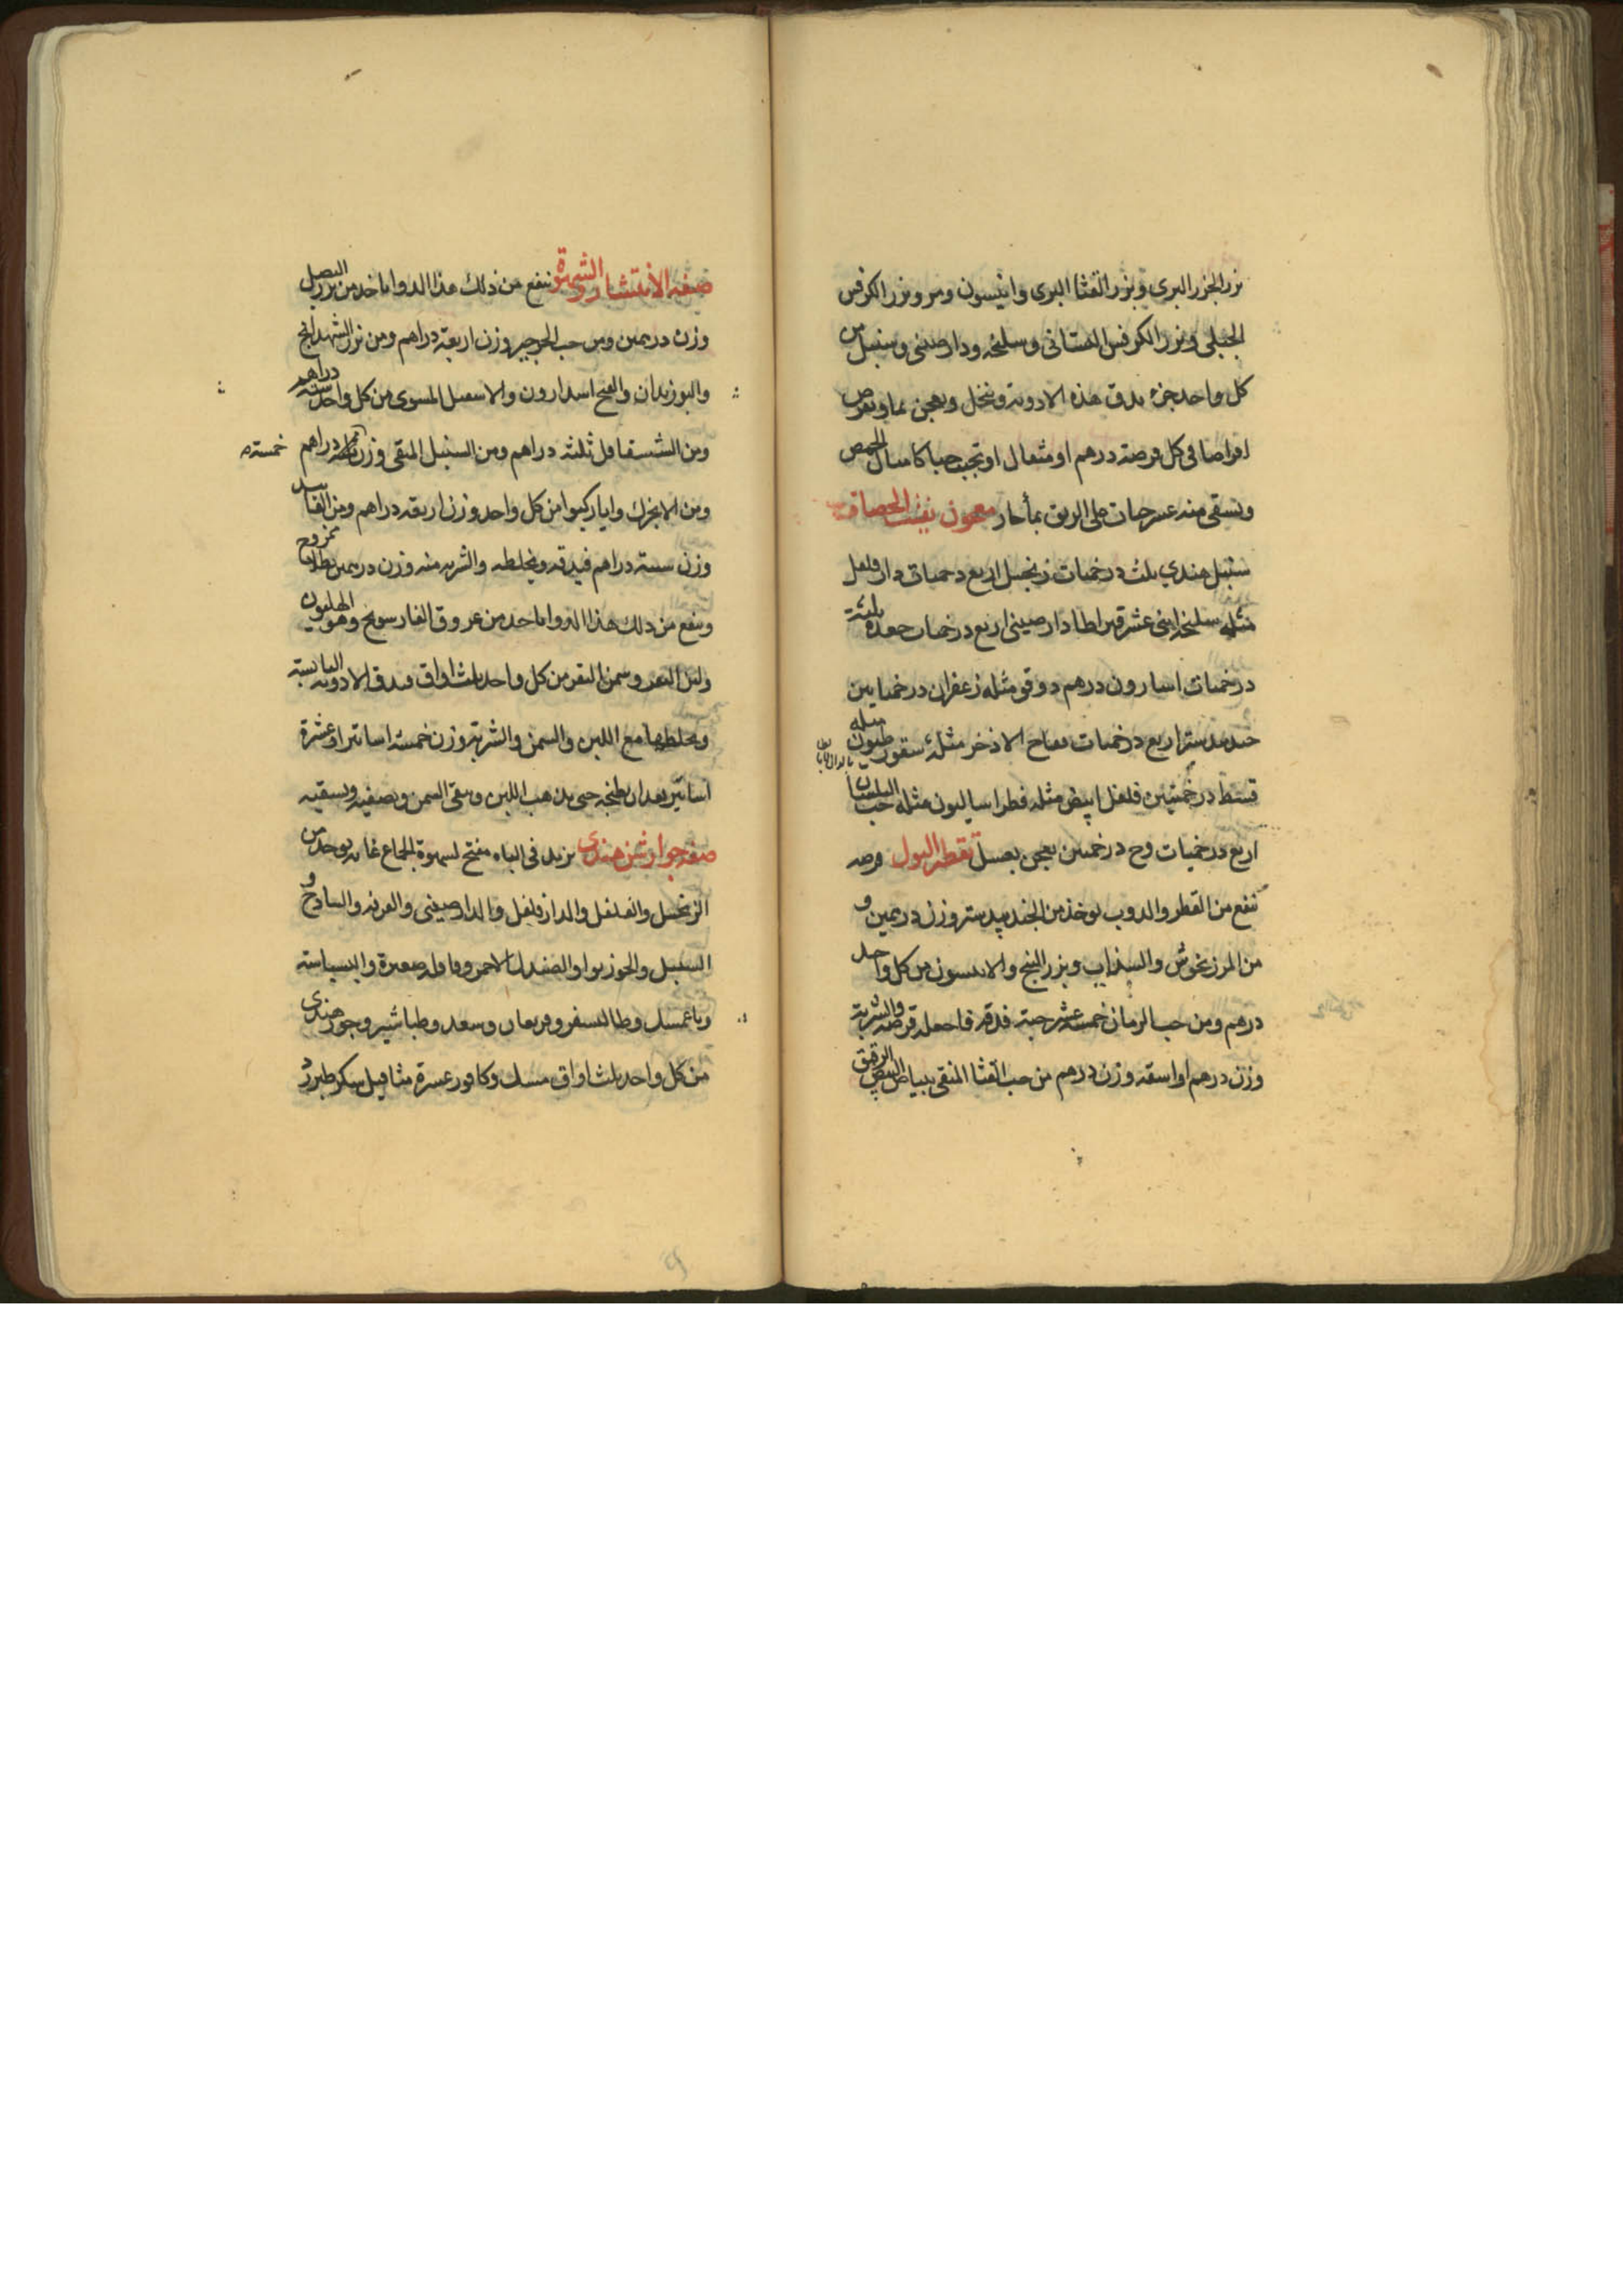 بزر الجزر البرى وبزر القثا البرى وانيسون ومر وبزر الكرفس
الجبلى وبزر الكرفس البستانى وسليخه ودارصينى وسنبل من
كل واحد جزء يدق هذه الادوية وتنخل ويعجن بماء ويقرص
اقراصا فى كل قرصة درهم او مثقال او تحبب حبا كامثال الحمص
وتسقى منه عشر حبات على الريق بماء حار معجون يفتت الحصاة
سنبل هندي ثلث درخميات زنجبيل اربع درخميات دار فلفل
مثله سليخه اثنى عشر قيراطا دارصينى اربع درخميات جعده ثلثة
درخميات اسارون درهم دوقو مثله زعفران درخميايين
جندبيدستر اربع درخميات فقاح الاذخر مثله سقورطيون مثله
قسط درخميين فلفل ابيض مثله فطراساليون مثله حب البلسان
اربع درخميات وج درخمين يعجن بعسل تقطير البول قرصه
تنفع من القطر والدوب يوخذ من الجندبيدستر وزن درهمين و
من المرزنجوش والسذاب وبزر البنج والانيسون من كل واحد
درهم ومن حب الرمان خمسة عشر حبة فدقه فاجعله قرصه والشربة
وزن درهم او اسقه وزن درهم من حب القثا المنقى ببياض البيض الرقيق
صفة الانتشار والشهوة ينفع من ذلك هذا الدوا ياخذ من بزر البصل
وزن درهمين ومن حب الجرجير وزن اربعة دراهم ومن بزر الشهدانج
والبوزيدان والاسقيل المسوى من كل واحد ستة دراهم
ومن الشقاقل ثلثة دراهم ومن السنبل المنقى وزن دراهم خمسة
ومن الانجرك من كل واحد وزن اربعة دراهم ومن الفانيد
وزن ستة دراهم فيدقه ويخلطه والشربه منه وزن درهمين بطلا ممزوج
وينفع من ذلك هذا الدوا ياخذ من عروق الفار وهو الهليون
ولبن البقر وسمن البقر من كل واحد ثلث اواق فيدق الادويه اليابسة
ويخلطها مع اللبن والسمن والشربة وزن خمسة اساتير او عشرة
اساتير بعد ان يطبخه حتى يذهب اللبن ويبقى السمن ويصفيه ويسقيه
صفة جوارشن هندى يزيد فى الباه مفتح لشهوة الجماع غايه يوخذ من
الزنجبيل والفلفل والدارفلفل والدارصينى والقرفه والسادج و
السنبل والجوزبوا والصندل الاحمر وقاقله صغيرة والبسباسة
وطاليسفر وسعد وطباشير وجوز هندى
من كل واحد ثلث اواق مسك وكافور عشرة مثاقيل سكر طبرزد